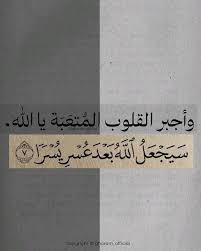 وأجبر القلوب المُتعَبة يا الله.
سَيَجْعَلُ ٱللَّهُ بَعْدَ عُسْرٍ يُسْرًا ٧